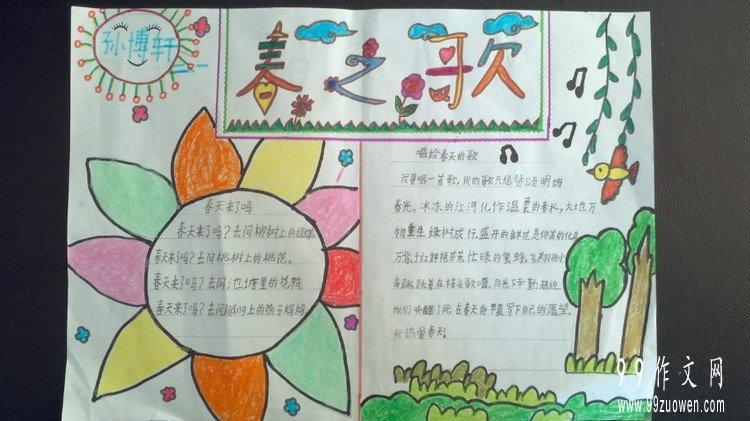 孙博轩
春之歌
春天来了吗
春天来了吗？去问柳树上的
春天来了吗？去问桃树上的桃花。
春天来了吗？去问，池塘里的
春天来了吗？去问 上的燕子妈妈。
唱给春天的歌
我要唱一首歌，我的歌只想 颂 明媚
春光。冰冻的江河化作温柔的春水，大地万
物重生 绿树成行，盛开的鲜花是你美的化身
万紫千红鲜艳芬芳 忙碌的蜜蜂，飞翔的小
鸟跳跃着在枝头歌唱。阳光下
你们唤醒了我，在春天的早晨写下自己的愿望。
我热爱春天。
99作文网
www.99zuowen.com